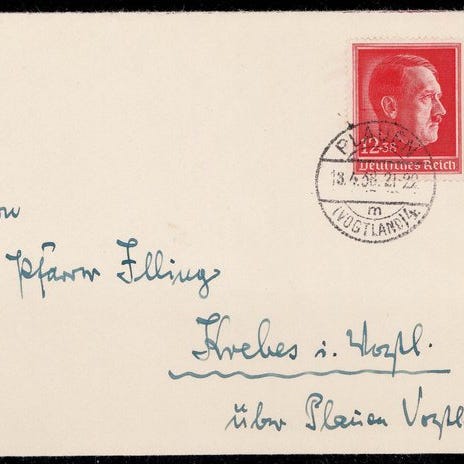 12+38
Deutsches Reich
PLAUEN
13.4.38.21-22
m
(VOGTLAND)4
Pfarrer Illing
Krebes i. Vogtl.
über Plauen Vogtl